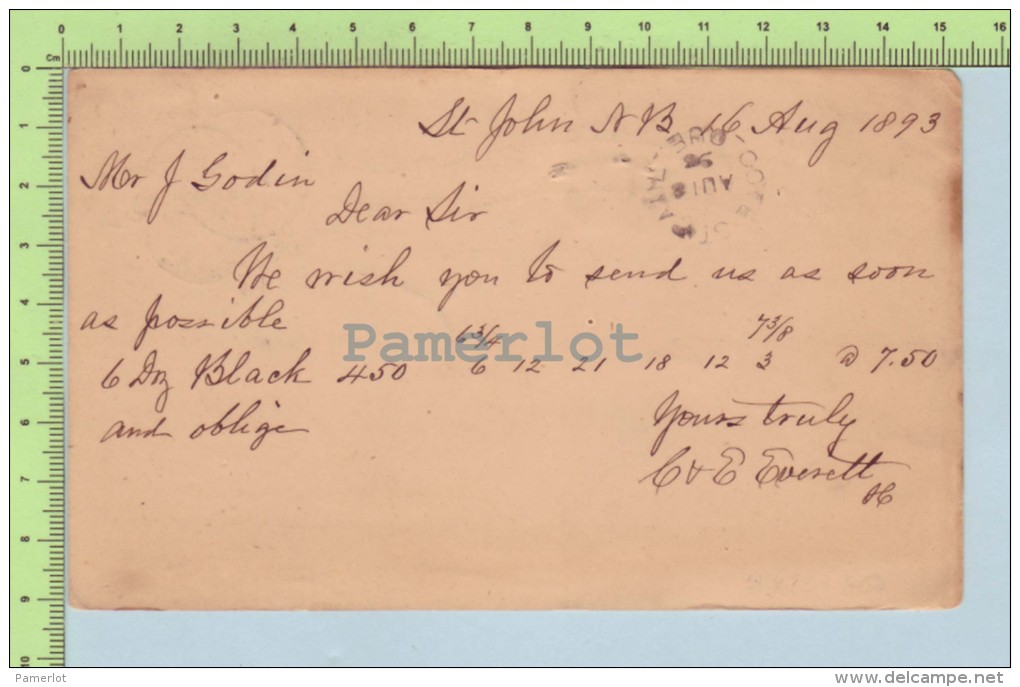 St John NB 16 Aug 1893
Mr J Godin
Dear Sir
We wish you to send us as soon
as possible
6 3/4 7 3/8
6 Doz Black 450 6 12 21 18 12 3 @ 7.50
and oblige
Yours truly
C & E Everett
Pamerlot
Cm 0 1 2 3 4 5 6 7 8 9 10 11 12 13 14 15 16
0
1
2
3
4
5
6
7
8
9
10
Pamerlot
www.delcampe.net